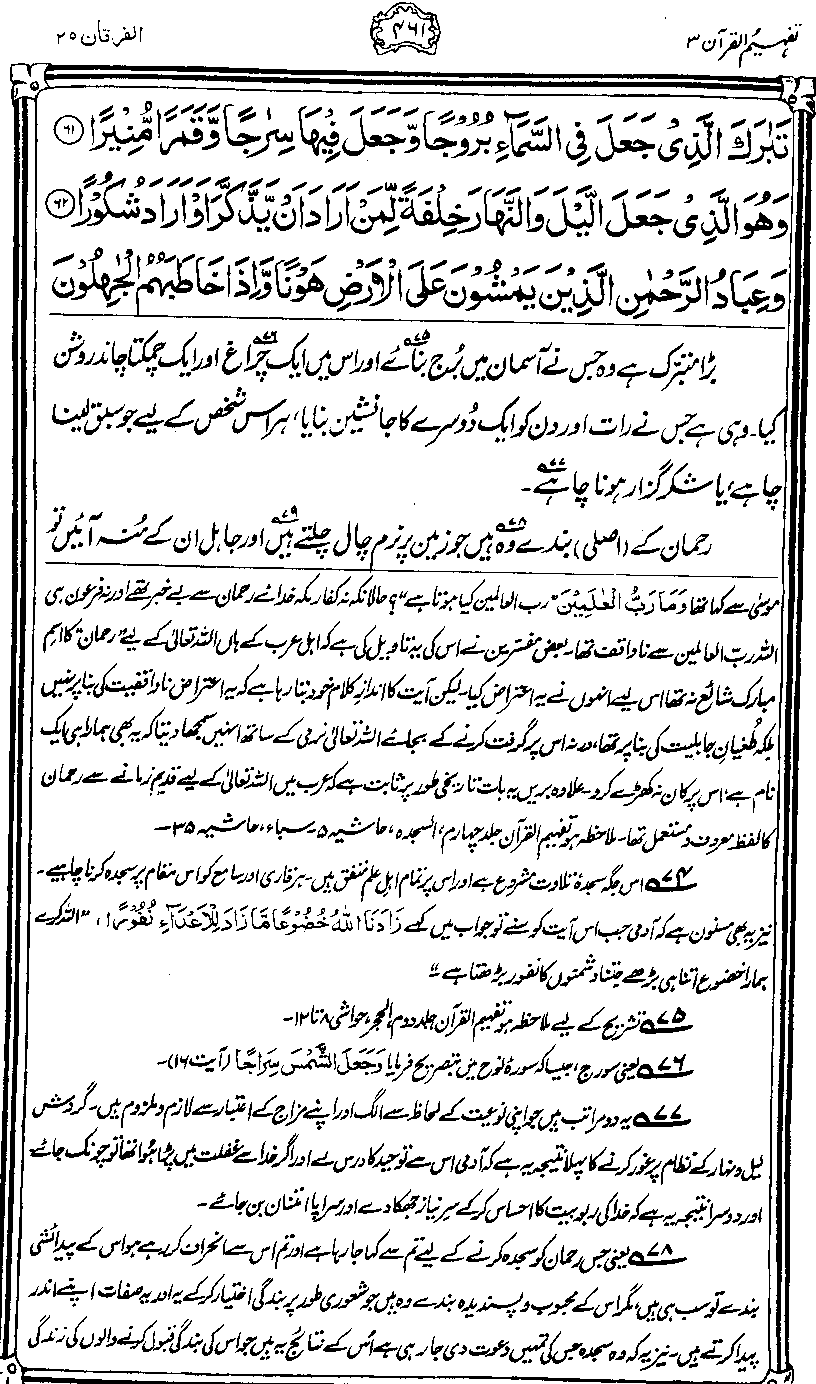 تفہیم القرآن ۳
۴۶۱
الفرقان ۲۵
تَبٰرَكَ الَّذِیْ جَعَلَ فِی السَّمَآءِ بُرُوْجًا وَّجَعَلَ فِیْهَا سِرٰجًا وَّقَمَرًا مُّنِیْرًا ۝۶۱
وَهُوَ الَّذِیْ جَعَلَ الَّیْلَ وَالنَّهَارَ خِلْفَةً لِّمَنْ اَرَادَ اَنْ یَّذَّكَّرَ اَوْ اَرَادَ شُكُوْرًا ۝۶۲
وَعِبَادُ الرَّحْمٰنِ الَّذِیْنَ یَمْشُوْنَ عَلَی الْاَرْضِ هَوْنًا وَّاِذَا خَاطَبَهُمُ الْجٰهِلُوْنَ
بڑا متبرک ہے وہ جس نے آسمان میں بُرج بنائے۷۵ اور اس میں ایک چراغ۷۶ اور ایک چمکتا چاند روشن
کیا۔ وہی ہے جس نے رات اور دن کو ایک دُوسرے کا جانشین بنایا، ہر اس شخص کے لیے جو سبق لینا
چاہے، یا شکر گزار ہونا چاہے۷۷۔
رحمان کے (اصلی) بندے وہ۷۸ ہیں جو زمین پر نرم چال چلتے ہیں۷۹ اور جاہل ان کے مُنہ آئیں تو
موسیٰ سے کہا تھا وَمَا رَبُّ الْعٰلَمِیْنَ ”رب العالمین کیا ہوتا ہے“؟ حالانکہ نہ کفار مکہ خدائے رحمان سے بے خبر تھے اور نہ فرعون ہی
اللہ رب العالمین سے ناواقف تھا۔ بعض مفسرین نے اس کی یہ تاویل کی ہے کہ اہل عرب کے ہاں اللہ تعالیٰ کے لیے ”رحمان“ کا اسم
مبارک شائع نہ تھا اس لیے انہوں نے یہ اعتراض کیا۔ لیکن آیت کا اندازِ کلام خود بتا رہا ہے کہ یہ اعتراض ناواقفیت کی بنا پر نہیں
بلکہ طُغیانِ جاہلیت کی بنا پر تھا، ورنہ اس پر گرفت کرنے کے بجائے اللہ تعالیٰ نرمی کے ساتھ انہیں سمجھا دیتا کہ یہ بھی ہمارا ہی ایک
نام ہے، اس پر کان نہ کھڑے کرو۔ علاوہ بریں یہ بات تاریخی طور پر ثابت ہے کہ عرب میں اللہ تعالیٰ کے لیے قدیم زمانے سے رحمان
کا لفظ معروف و مستعمل تھا۔ ملاحظہ ہو تفہیم القرآن جلد چہارم، السجدہ، حاشیہ ۵۔ سباء، حاشیہ ۳۵۔
۷۴ اس جگہ سجدۂ تلاوت مشروع ہے اور اس پر تمام اہل علم متفق ہیں۔ ہر قاری اور سامع کو اس مقام پر سجدہ کرنا چاہیے۔
نیز یہ بھی مسنون ہے کہ آدمی جب اس آیت کو سنے تو جواب میں کہے زَادَنَا اللّٰهُ خُضُوْعًا مَّا زَادَ لِلْاَعْدَآءِ نُفُوْرًا، ”اللہ کرے
ہمارا خضوع اتنا ہی بڑھے جتنا دشمنوں کا نفور بڑھتا ہے“
۷۵ تشریح کے لیے ملاحظہ ہو تفہیم القرآن جلد دوم، الحجر، حواشی ۸ تا ۱۲۔
۷۶ یعنی سورج، جیسا کہ سورۂ نوح میں بتصریح فرمایا وَجَعَلَ الشَّمْسَ سِرَاجًا (آیت ۱۶)۔
۷۷ یہ دو مراتب ہیں جو اپنی نوعیت کے لحاظ سے الگ اور اپنے مزاج کے اعتبار سے لازم و ملزوم ہیں۔ گردش
لیل و نہار کے نظام پر غور کرنے کا پہلا نتیجہ یہ ہے کہ آدمی اس سے توحید کا درس لے اور اگر خدا سے غفلت میں پڑا ہوا تھا تو چونک جائے۔
اور دوسرا نتیجہ یہ ہے کہ خدا کی ربوبیت کا احساس کر کے سرِ نیاز جھکا دے اور سراپا امتنان بن جائے۔
۷۸ یعنی جس رحمان کو سجدہ کرنے کے لیے تم سے کہا جا رہا ہے اور تم اس سے انحراف کر رہے ہو اس کے پیدائشی
بندے تو سب ہی ہیں، مگر اس کے محبوب و پسندیدہ بندے وہ ہیں جو شعوری طور پر بندگی اختیار کر کے یہ اور یہ صفات اپنے اندر
پیدا کرتے ہیں۔ نیز یہ کہ وہ سجدہ جس کی تمہیں دعوت دی جا رہی ہے اُس کے نتائج یہ ہیں جو اس کی بندگی قبول کرنے والوں کی زندگی